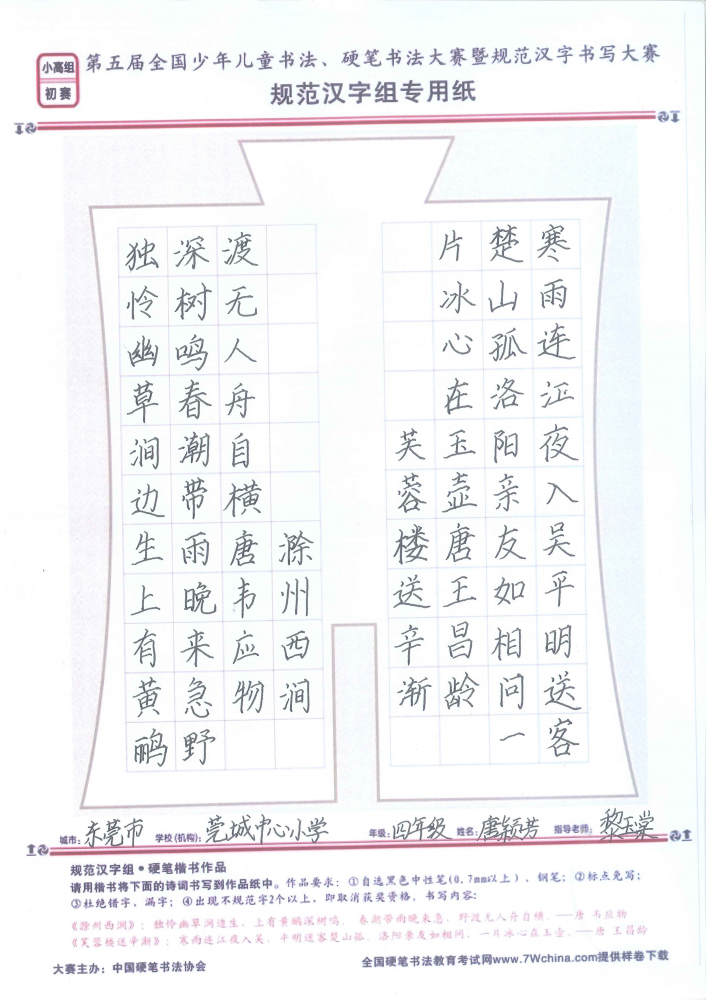 小高组
初赛
第五届全国少年儿童书法、硬笔书法大赛暨规范汉字书写大赛
规范汉字组专用纸
独怜幽草涧边生上有黄鹂
深树鸣春潮带雨晚来急野
渡无人舟自横唐韦应物
滁州西涧
寒雨连江夜入吴平明送客
楚山孤洛阳亲友如相问一
片冰心在玉壶唐王昌龄
芙蓉楼送辛渐
城市：东莞市 学校(机构)：莞城中心小学 年级：四年级 姓名：唐颖芳 指导老师：黎玉棠
规范汉字组•硬笔楷书作品
请用楷书将下面的诗词书写到作品纸中。作品要求：①自选黑色中性笔(0.7mm以上)、钢笔；②标点免写；
③杜绝错字，漏字；④出现不规范字2个以上，即取消获奖资格。书写内容：
《滁州西涧》：独怜幽草涧边生，上有黄鹂深树鸣。 春潮带雨晚来急，野渡无人舟自横。——唐 韦应物
《芙蓉楼送辛渐》：寒雨连江夜入吴，平明送客楚山孤。洛阳亲友如相问，一片冰心在玉壶。——唐 王昌龄
大赛主办：中国硬笔书法协会 全国硬笔书法教育考试网www.7Wchina.com提供样卷下载